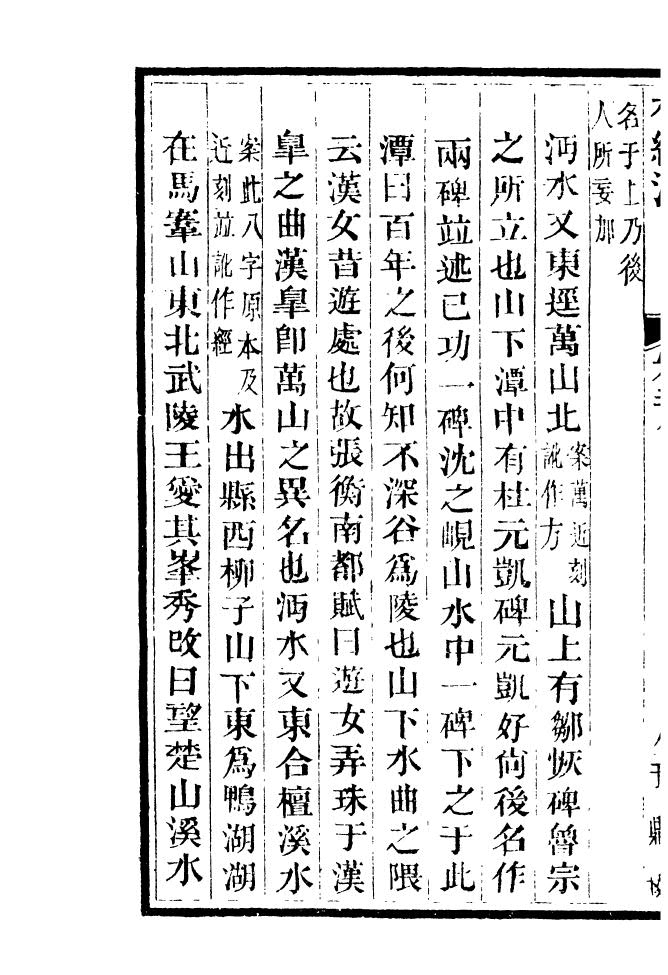 水經注
名于上乃後
人所妄加
沔水又東逕萬山北案萬近刻訛作方山上有鄒恢碑魯宗
之所立也山下潭中有杜元凱碑元凱好尙後名作
兩碑竝述已功一碑沈之峴山水中一碑下之于此
潭曰百年之後何知不深谷爲陵也山下水曲之隈
云漢女昔遊處也故張衡南都賦曰遊女弄珠于漢
臯之曲漢臯卽萬山之異名也沔水又東合檀溪水
案此八字原本及近刻竝訛作經水出縣西柳子山下東爲鴨湖湖
在馬鞌山東北武陵王愛其峯秀改曰望楚山溪水